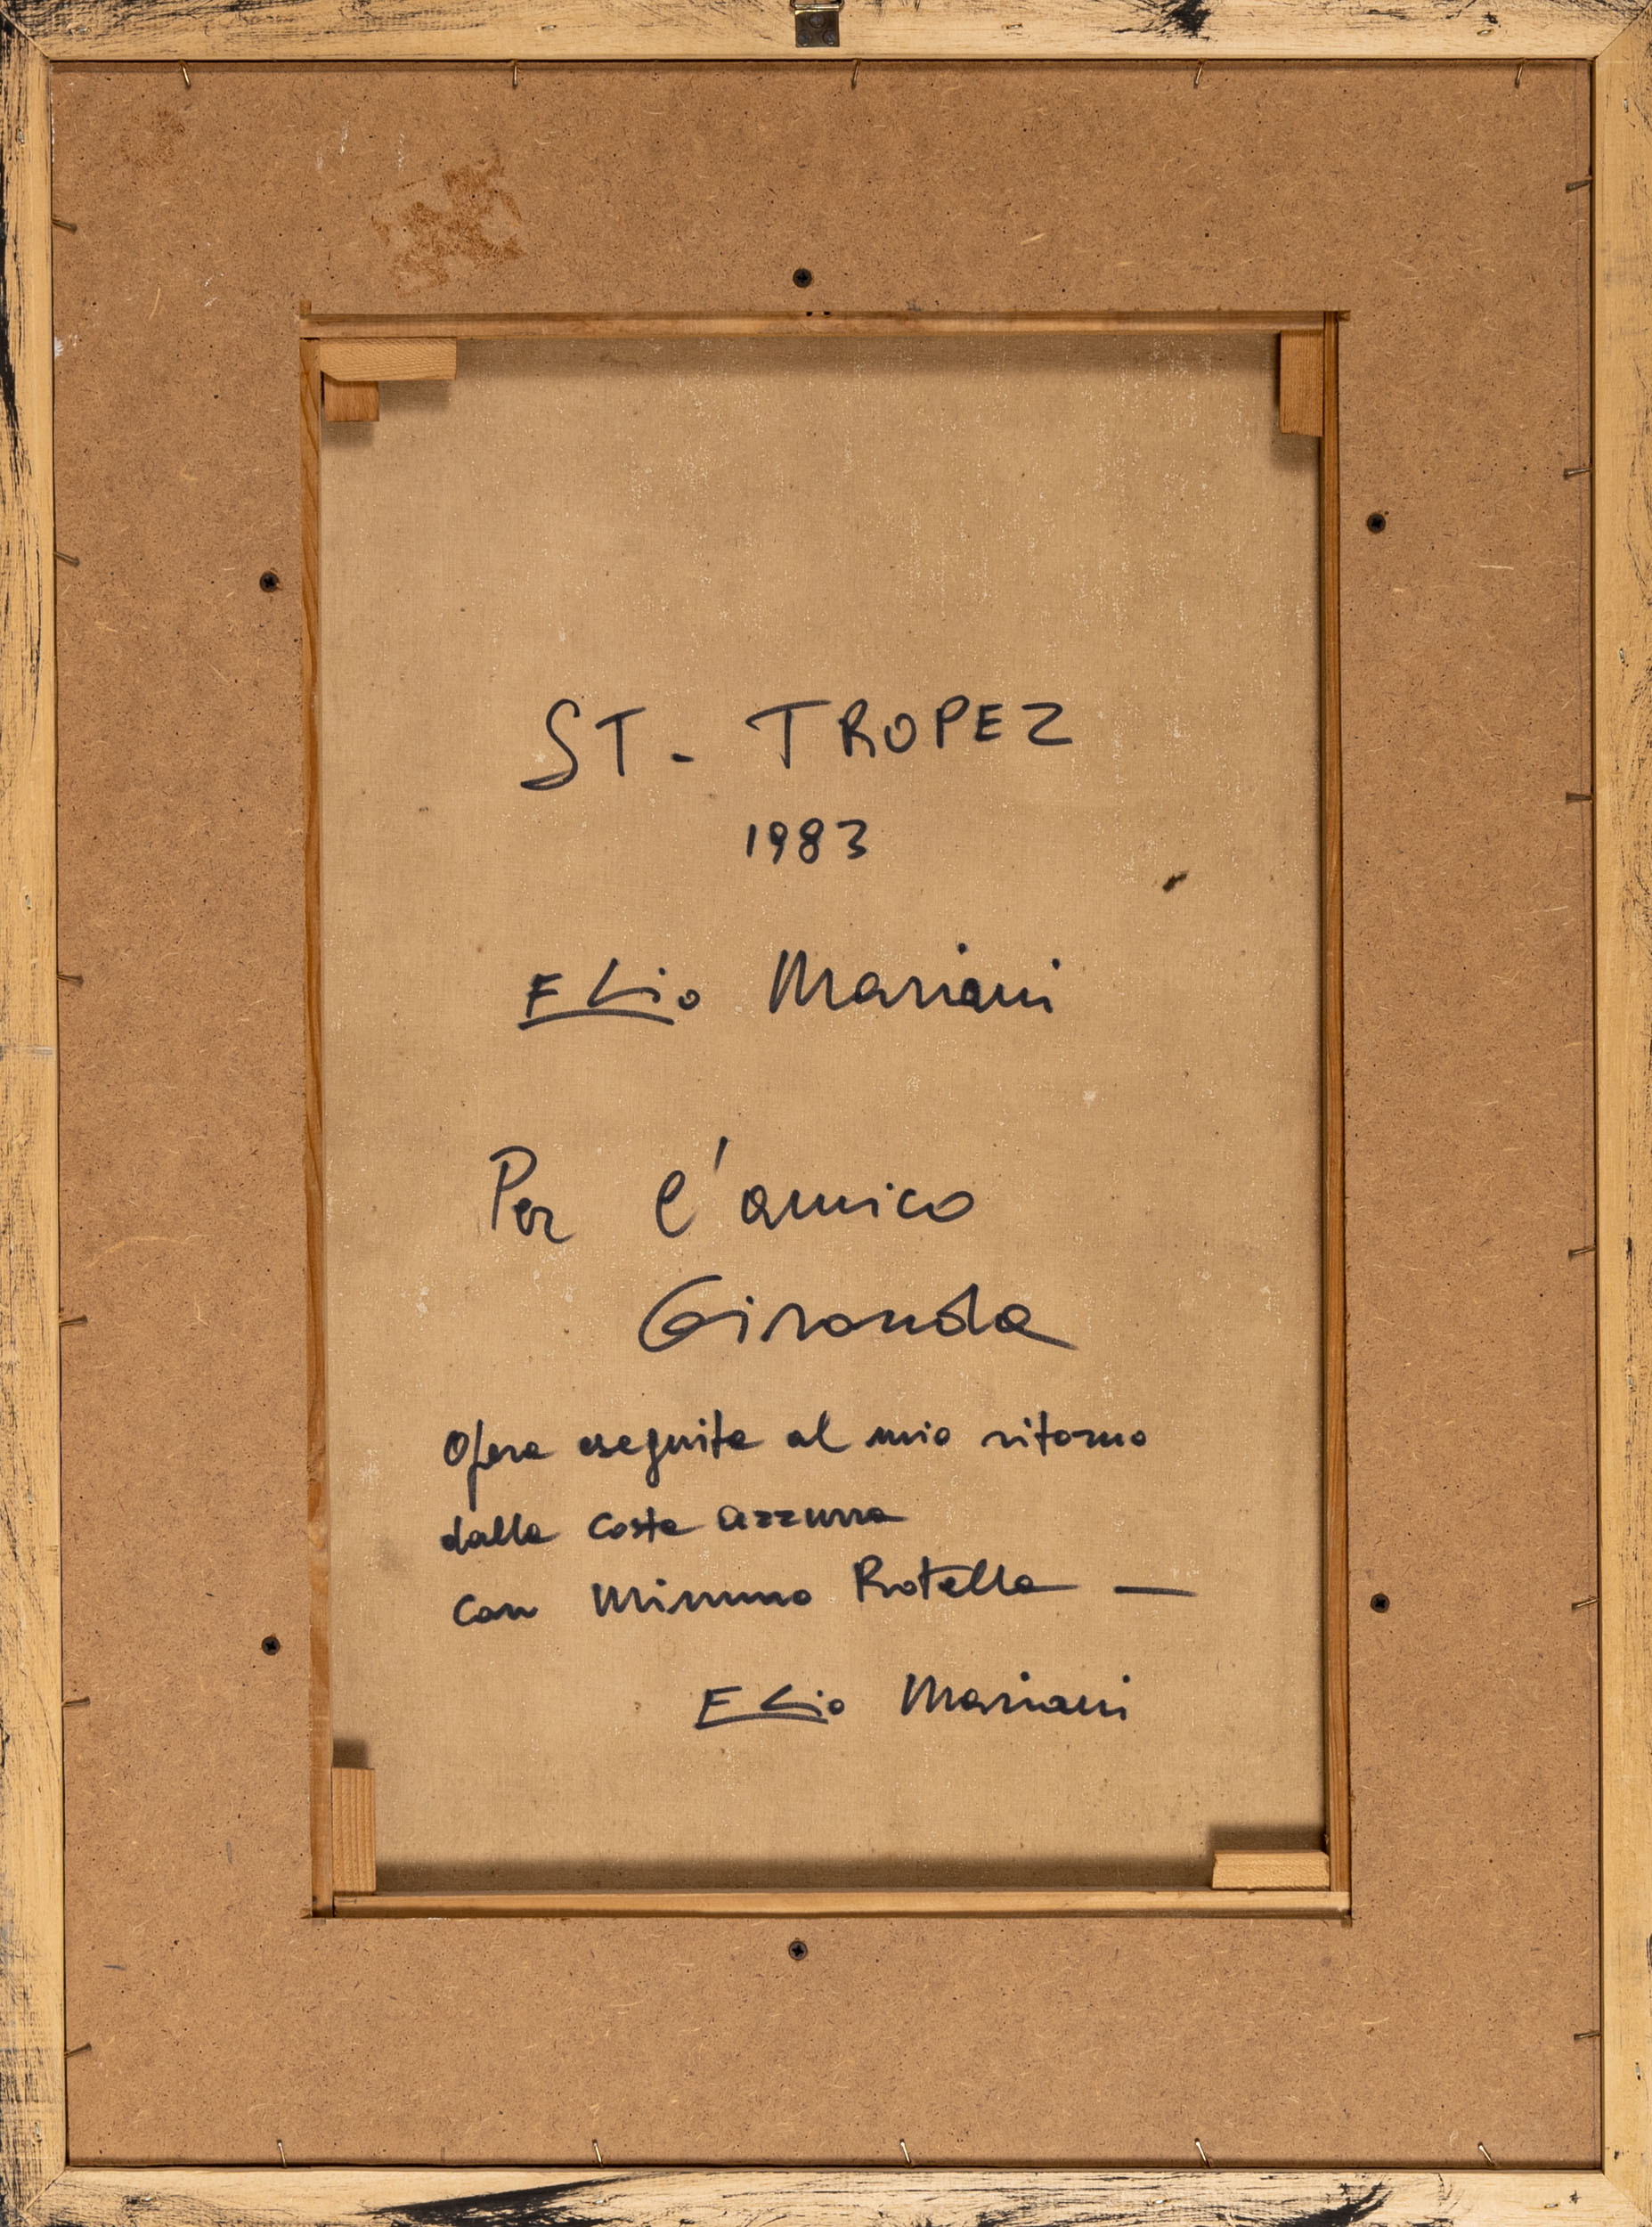 ST - TROPEZ
1983
ELio Mariani
Per l'amico
Gironda
Opera eseguita al mio ritorno
dalla Costa azzurra
con Mimmo Rotella —
ELio Mariani